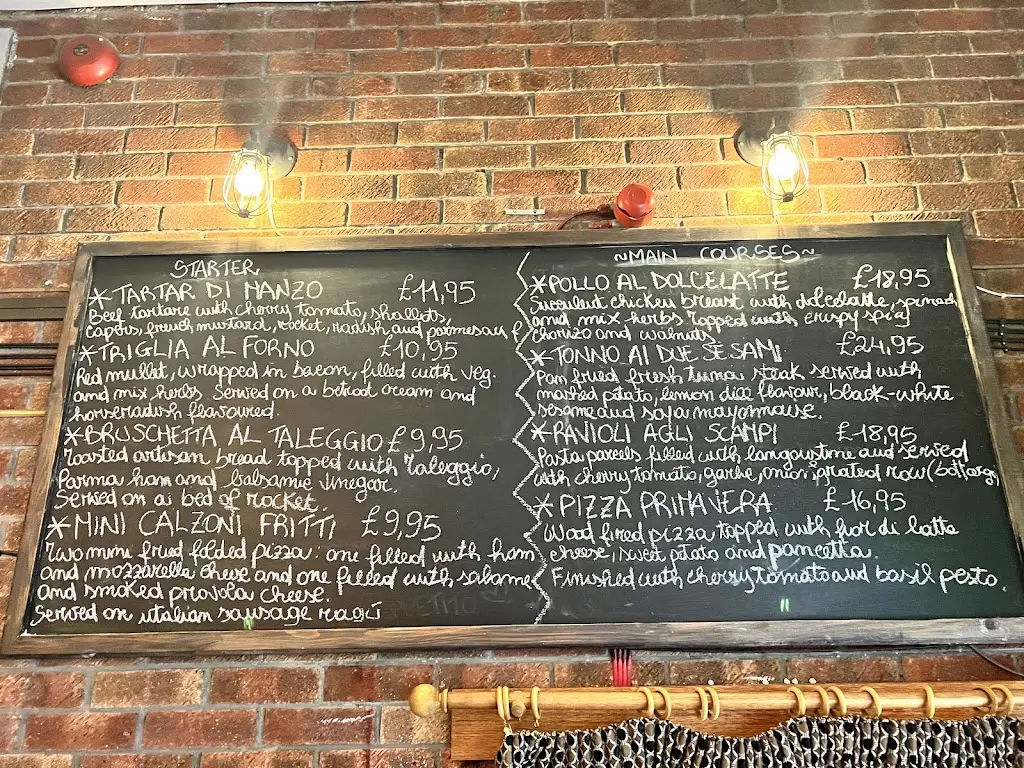 STARTER
*TARTAR DI MANZO £11,95
Beef tartare with cherry tomato, shallots,
capers, french mustard, rocket, radish and parmesan
*TRIGLIA AL FORNO £10,95
Red mullet, wrapped in bacon, filled with veg.
and mix herbs. Served on a betroot cream and
horseradish flavoured.
*BRUSCHETTA AL TALEGGIO £9,95
Toasted artisan bread topped with Taleggio,
Parma ham and balsamic vinegar.
Served on a bed of rocket.
*MINI CALZONI FRITTI £9,95
Two mini fried folded pizza: one filled with ham
and mozzarella cheese and one filled with salame
and smoked provola cheese.
Served on italian sausage ragù
~MAIN COURSES~
*POLLO AL DOLCELATTE £18,95
Succulent chicken breast with dolcelatte, spinach
and mix herbs topped with crispy
chorizo and walnuts
*TONNO AI DUE SESAMI £24,95
Pan fried fresh tuna steak served with
mashed potato, lemon dice flavour, black-white
sesame and soja mayonnaise.
*RAVIOLI AGLI SCAMPI £18,95
Pasta parcels filled with langoustine and served
with cherry tomato, garlic, onion, grated
*PIZZA PRIMAVERA £16,95
Wood fired pizza topped with fior di latte
cheese, sweet potato and pancetta.
Finished with cherry tomato and basil pesto.